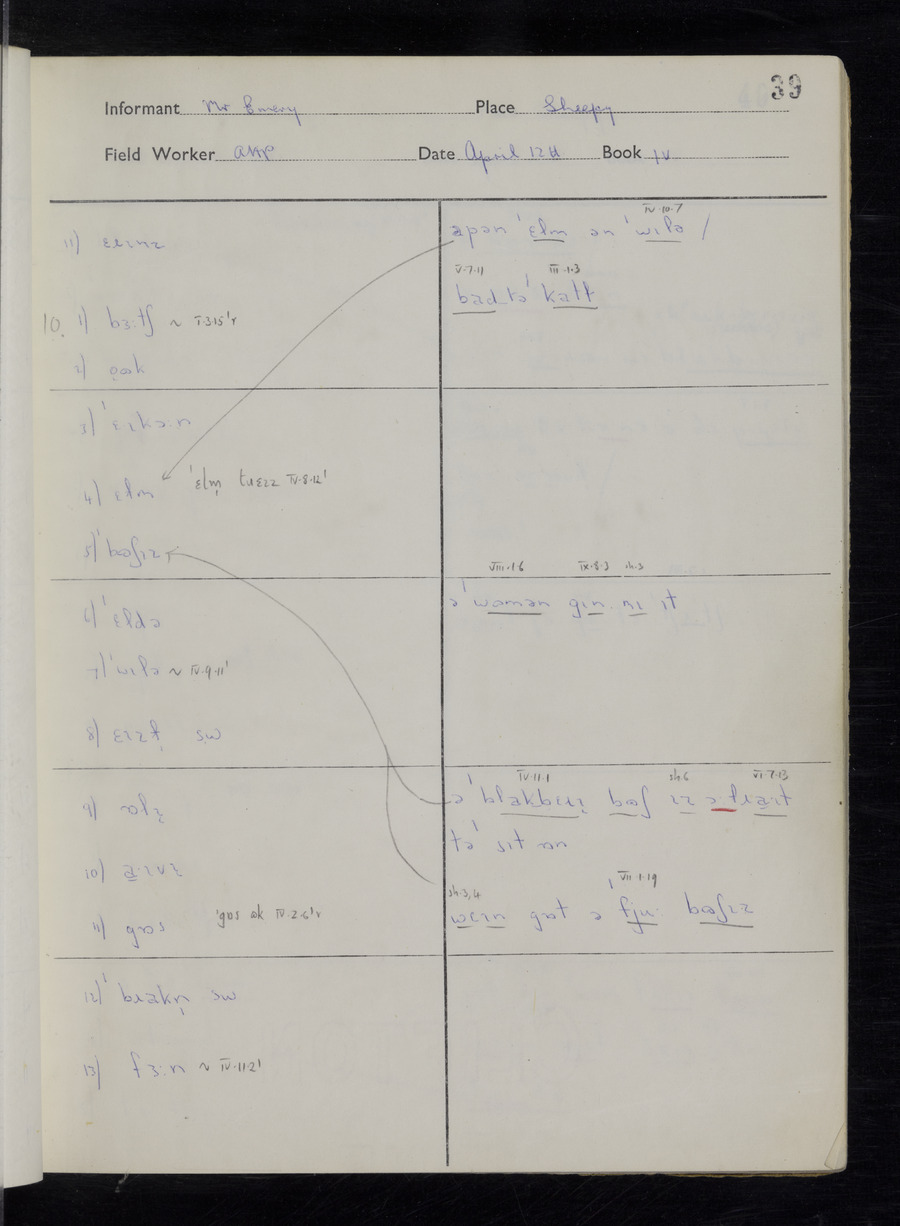 39
Informant Mr Emery Place Sheepy
Field Worker Date April 12th Book IV
11) ɛɹɪnz
10. 1) bɜ:tʃ ~ V.3.15'r
2) ǫɒk
3) 'ɛɪkɔ:n
4) ɛlm 'ɛlm̩ tɹɛɪz IV.8.12'
5) 'bɷʃɪz
6) 'ɛldə
7) 'wɪlə ~ IV.9.11'
8) sw
9)
10)
11) gɒs 'gɒs ak IV.2.6'r
12) 'bɹakn̩ sw
13) fɜ:n ~ IV.11.2'
IV.10.7
apən 'ɛlm ən 'wɪlə /
V.7.11 III.1.3
bad tə' kalt
VIII.1.6 IX.8.3 sh.3
ə 'wɷmən gɪn mɪ ɪt
IV.11.1 sh.6 VI.7.13
ə 'blakbɹɪ bɷʃ ɪz
tə 'sɪt ɒn
sh.3,4 VII.1.19
wɛɪn gɒt ə 'fju: bɷʃɪz